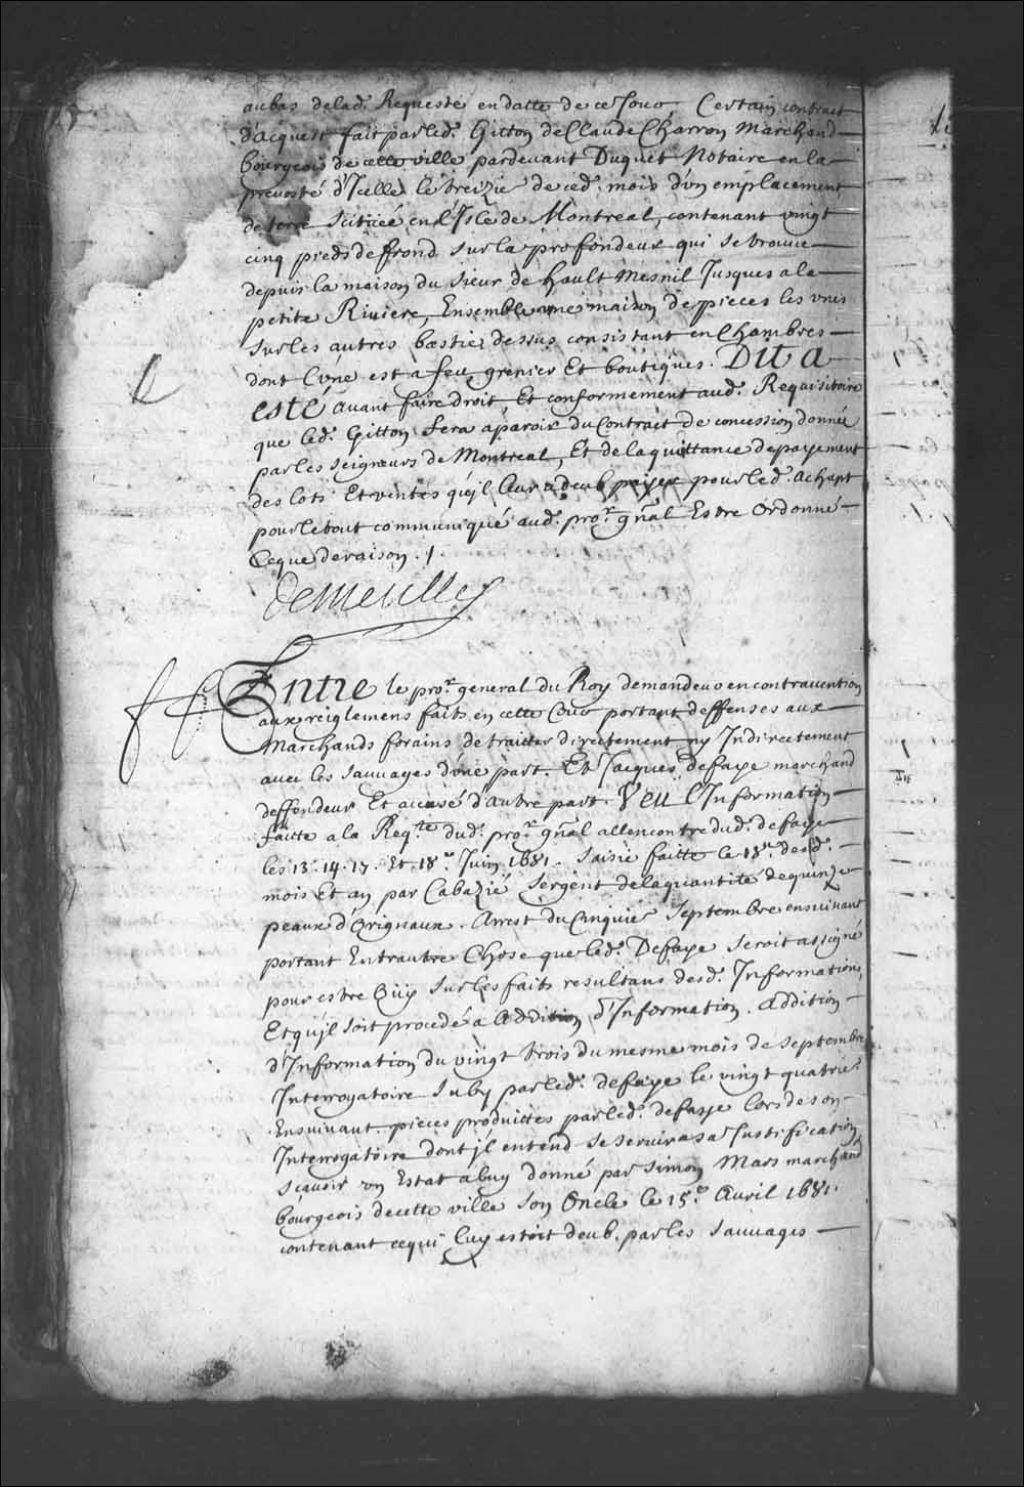 au bas de lad. Requeste en datte de ce jour Certain contract
d'acquest fait par led. Gitton de Claude Charron Marchand
bourgeois de cette ville pardevant Duquet Notaire en la
prevosté d'Icelle le treizie de ced. mois d'un emplacement
de terre scitüée en l'Isle de Montreal, contenant vingt
cinq pieds de frond sur la profondeur qui se trouue
depuis la maison du sieur de hault mesnil Jusques a la
petite Riuiere, Ensemble une maison de pieces les vnes
sur les autres basties dessus consistant en Chambres
dont l'vne est a feu grenier Et boutiques. Dit a
esté auant faire droit, Et conformement aud. Requisitoire
que led. Gitton fera aparoir du Contract de concession donnée
par les seigneurs de Montreal, Et de la quittance de payement
des lots Et ventes qu'jl leur a deub payer pour led. achapt
pour le tout communiqué aud. pror. gnal Estre Ordonné
Ce que de raison ./.
demeulles
Entre le pror. general du Roy demandeur en contrauention
aux reiglemens faits en cette Cour portant deffenses aux
Marchands forains de traitter directement ny Indirectement
auec les sauuages d'une part. Et Jacques defaye marchand
deffendeur Et accusé d'autre part. Veu l'Information
faitte a la Reqte. dud. pror. gnal allencontre dud. defaye
les 13. 14. 17. Et 18e. Juin 1681. saisie faitte le 18e. desd.
mois Et an par Cabazié sergent de la quantité de quinze
peaux d'Orignaux. Arrest du Cinquie Septembre ensuiuant
portant Entr'autre Chose que led. Defaye seroit assigné
pour estre Oüy sur les faits resultans desd. Informations,
Et qu'jl soit procedé a addition d'Information. Addition
d'Information du vingt trois du mesme mois de septembre
Interrogatoire suby par led. defaye le vingt quatrie.
Ensuiuant, pieces produittes par led. defaye lors de son
Interrogatoire dont jl entend se seruir a sa Justification
scauoir vn Estat a luy donné par simon Mars marchand
bourgeois de cette ville son Oncle le 15e. Auril 1681.
contenant ce qui luy estoit deub par les sauuages